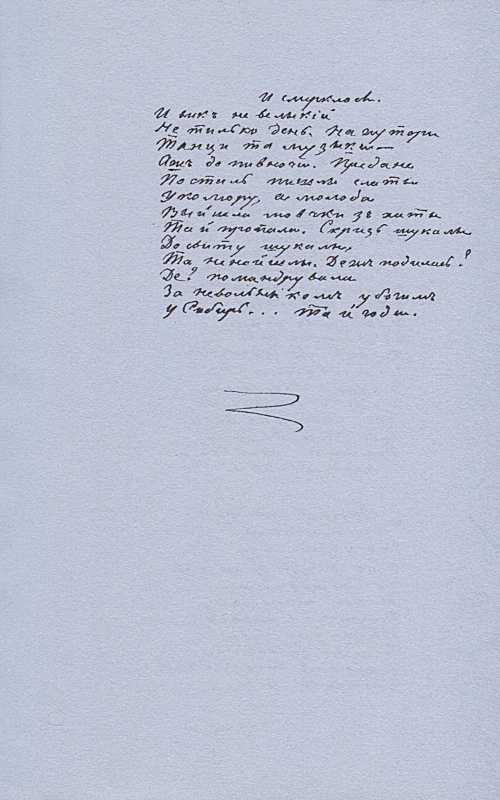 И смерклось.
И викъ не велыкій
Не тилько день. На хутори
Танци та музыки —
Ажъ до пивночи. Придане
Постиль пишлы слаты
У комору, а молода
Выйшла мовчки зъ хаты
Та й пропала. Скризь шукалы
До свиту шукалы,
Та ненайшлы. Дежъ подилась?
Де? помандрувала
За невольныкомъ убогимъ
У Сибирь... та й годи.